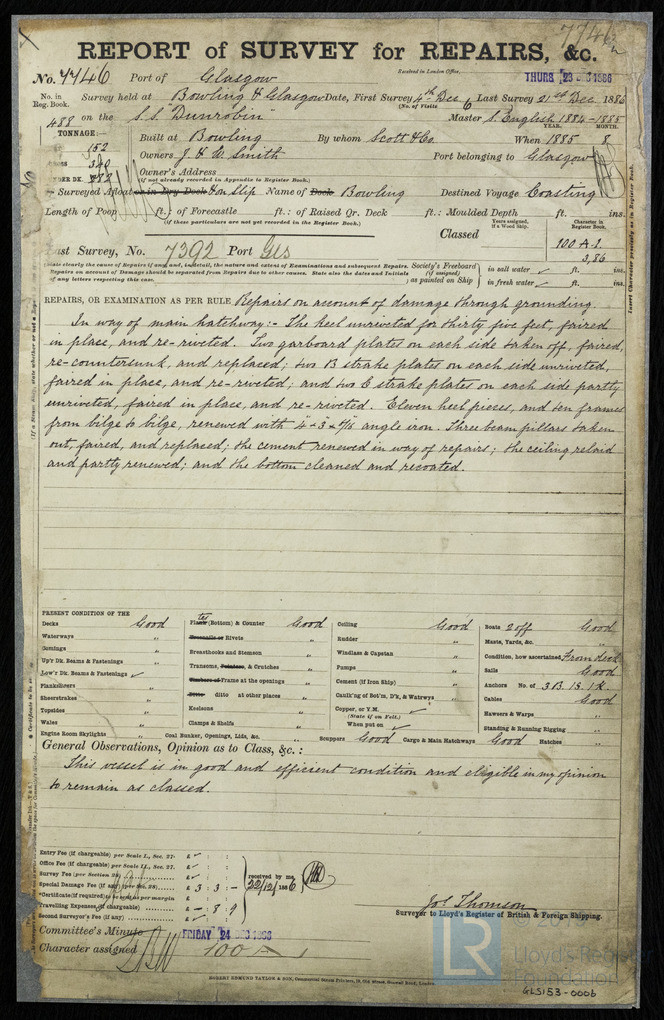 7746
REPORT of SURVEY for REPAIRS, &c.
No. 7746 Port of Glasgow Received in London Office, THURS 23 DEC 1886
No. in Reg. Book. Survey held at Bowling & Glasgow Date, First Survey 4th Dec. Last Survey 21st Dec 1886
(No. of Visits 6
488 on the S.S. "Dunrobin" Master S. English 1884-1885
TONNAGE: YEAR. MONTH.
152 Built at Bowling By whom Scott & Co. When 1885 8
GROSS 340 Owners J. & W. Smith Port belonging to Glasgow
UNDER DK. Owner's Address
(if not already recorded in Appendix to Register Book.)
Surveyed Afloat or in Dry Dock & on Slip Name of Dock Bowling Destined Voyage Coasting
Length of Poop ft.; of Forecastle ft.: of Raised Qr. Deck ft.: Moulded Depth ft. ins.
(if these particulars are not yet recorded in the Register Book.)
Classed Years assigned, if a Wood Ship. Character in Register Book.
100 A.1.
3,86
Last Survey, No. 7392 Port Gls
State clearly the cause of Repairs if any and, in detail, the nature and extent of Examinations and subsequent Repairs.
Repairs on account of Damage should be separated from Repairs due to other causes. State also the dates and Initials
of any letters respecting this case.
Society's Freeboard (if assigned) as painted on Ship
in salt water ✓ ft. ins.
in fresh water ✓ ft. ins.
Insert Character precisely as in Register Book.
REPAIRS, OR EXAMINATION AS PER RULE Repairs on account of damage through grounding.
In way of main hatchway:- The keel unriveted for thirty five feet, faired
in place, and re-riveted. Two garboard plates on each side taken off, faired,
re-countersunk, and replaced; two B strake plates on each side unriveted,
faired in place, and re-riveted; and two C strake plates on each side partly
unriveted, faired in place, and re-riveted. Eleven heel pieces, and ten frames
from bilge to bilge, renewed with 4 × 3 × 6/16 angle iron. Three beam pillars taken
out, faired, and replaced; the cement renewed in way of repairs; the ceiling relaid
and partly renewed; and the bottom cleaned and recoated.
PRESENT CONDITION OF THE
Decks Good
Waterways "
Comings "
Up'r Dk. Beams & Fastenings "
Low'r Dk. Beams & Fastenings ✓
Planksheers "
Sheerstrakes "
Topsides "
Wales "
Engine Room Skylights "
Plates (Bottom) & Counter Good
Treenails or Rivets "
Breasthooks and Stemson "
Transoms, Pointers, & Crutches "
Timbers or Frame at the openings "
Ditto ditto at other places "
Keelsons "
Clamps & Shelfs "
Coal Bunker, Openings, Lids, &c. "
Ceiling Good
Rudder "
Windlass & Capstan "
Pumps "
Cement (if Iron Ship) "
Caulk'ng of Bot'm, D'k, & Watrwys "
Copper, or Y.M. ✓
(State if on Felt.)
When put on ✓
Scuppers Good Cargo & Main Hatchways Good Hatches "
Boats 2 off Good
Masts, Yards, &c. "
Condition, how ascertained From deck
Sails Good
Anchors No. of 3B. 1S. 1K.
Cables Good
Hawsers & Warps "
Standing & Running Rigging "
General Observations, Opinion as to Class, &c.:
This vessel is in good and efficient condition and eligible in my opinion
to remain as classed.
Entry Fee (if chargeable) per Scale I., Sec. 27- £ ✓ : :
Office Fee (if chargeable) per Scale II., Sec. 27. £ ✓ : :
Survey Fee (per Section 28) £ ✓ : :
Special Damage Fee (if any) (per Sec. 28) £ 3 : 3 : -
*Certificate (if required) to be sent as per margin £ : :
Travelling Expenses, (if chargeable) £ - : 8 : 9
Second Surveyor's Fee (if any) £ ✓ : :
received by me, 22/12/1886
Jos Thomson
Surveyor to Lloyd's Register of British & Foreign Shipping.
Committee's Minute FRIDAY 24 DEC 1886
Character assigned 100 A 1
ROBERT EDMUND TAYLOR & SON, Commercial Steam Printers, 19, Old Street, Goswell Road, London.
LR
Lloyd's Register
Foundation
GLS153-0006